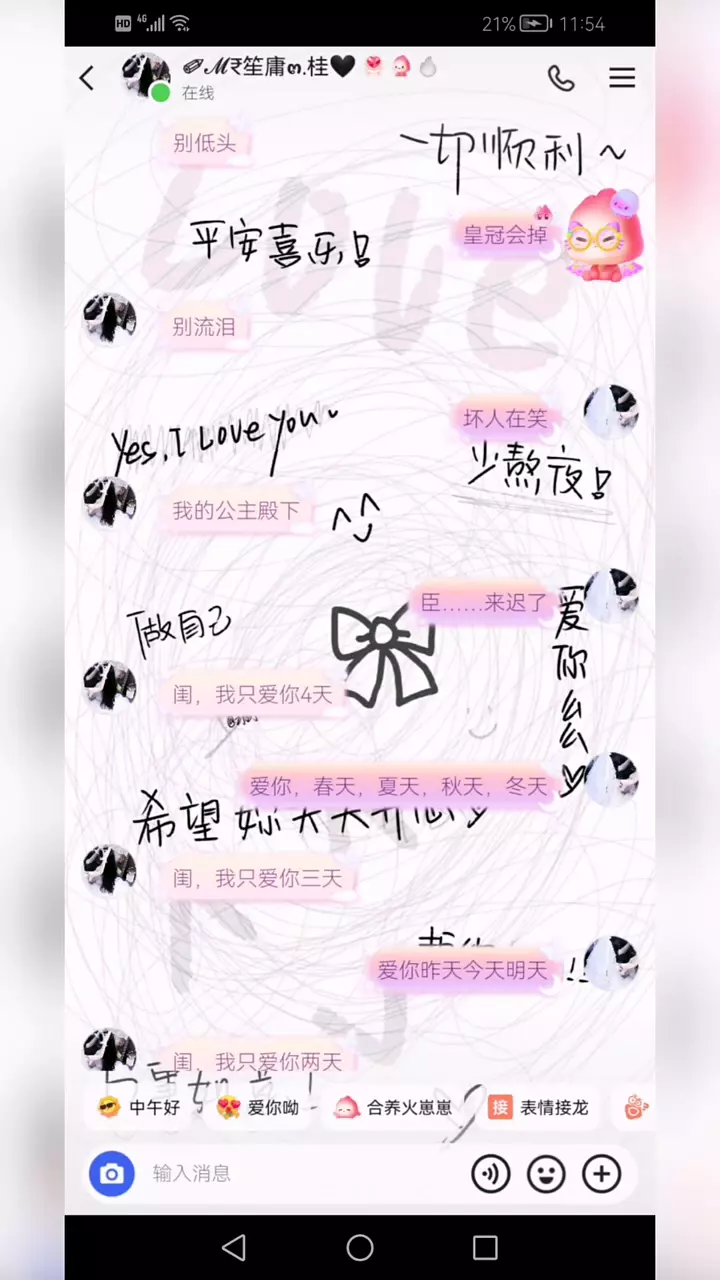 HD 4G 21% 11:54
笙庸ო.桂🖤
在线
别低头
一切顺利~
平安喜乐!
皇冠会掉
别流泪
坏人在笑
Yes, I Love you~
少熬夜!
我的公主殿下
臣……来迟了
做自己
爱你么么
闺，我只爱你4天
爱你，春天，夏天，秋天，冬天
希望妳天天开心
闺，我只爱你三天
爱你昨天今天明天
!!
闺，我只爱你两天
中午好 爱你呦 合养火崽崽 接 表情接龙
输入消息